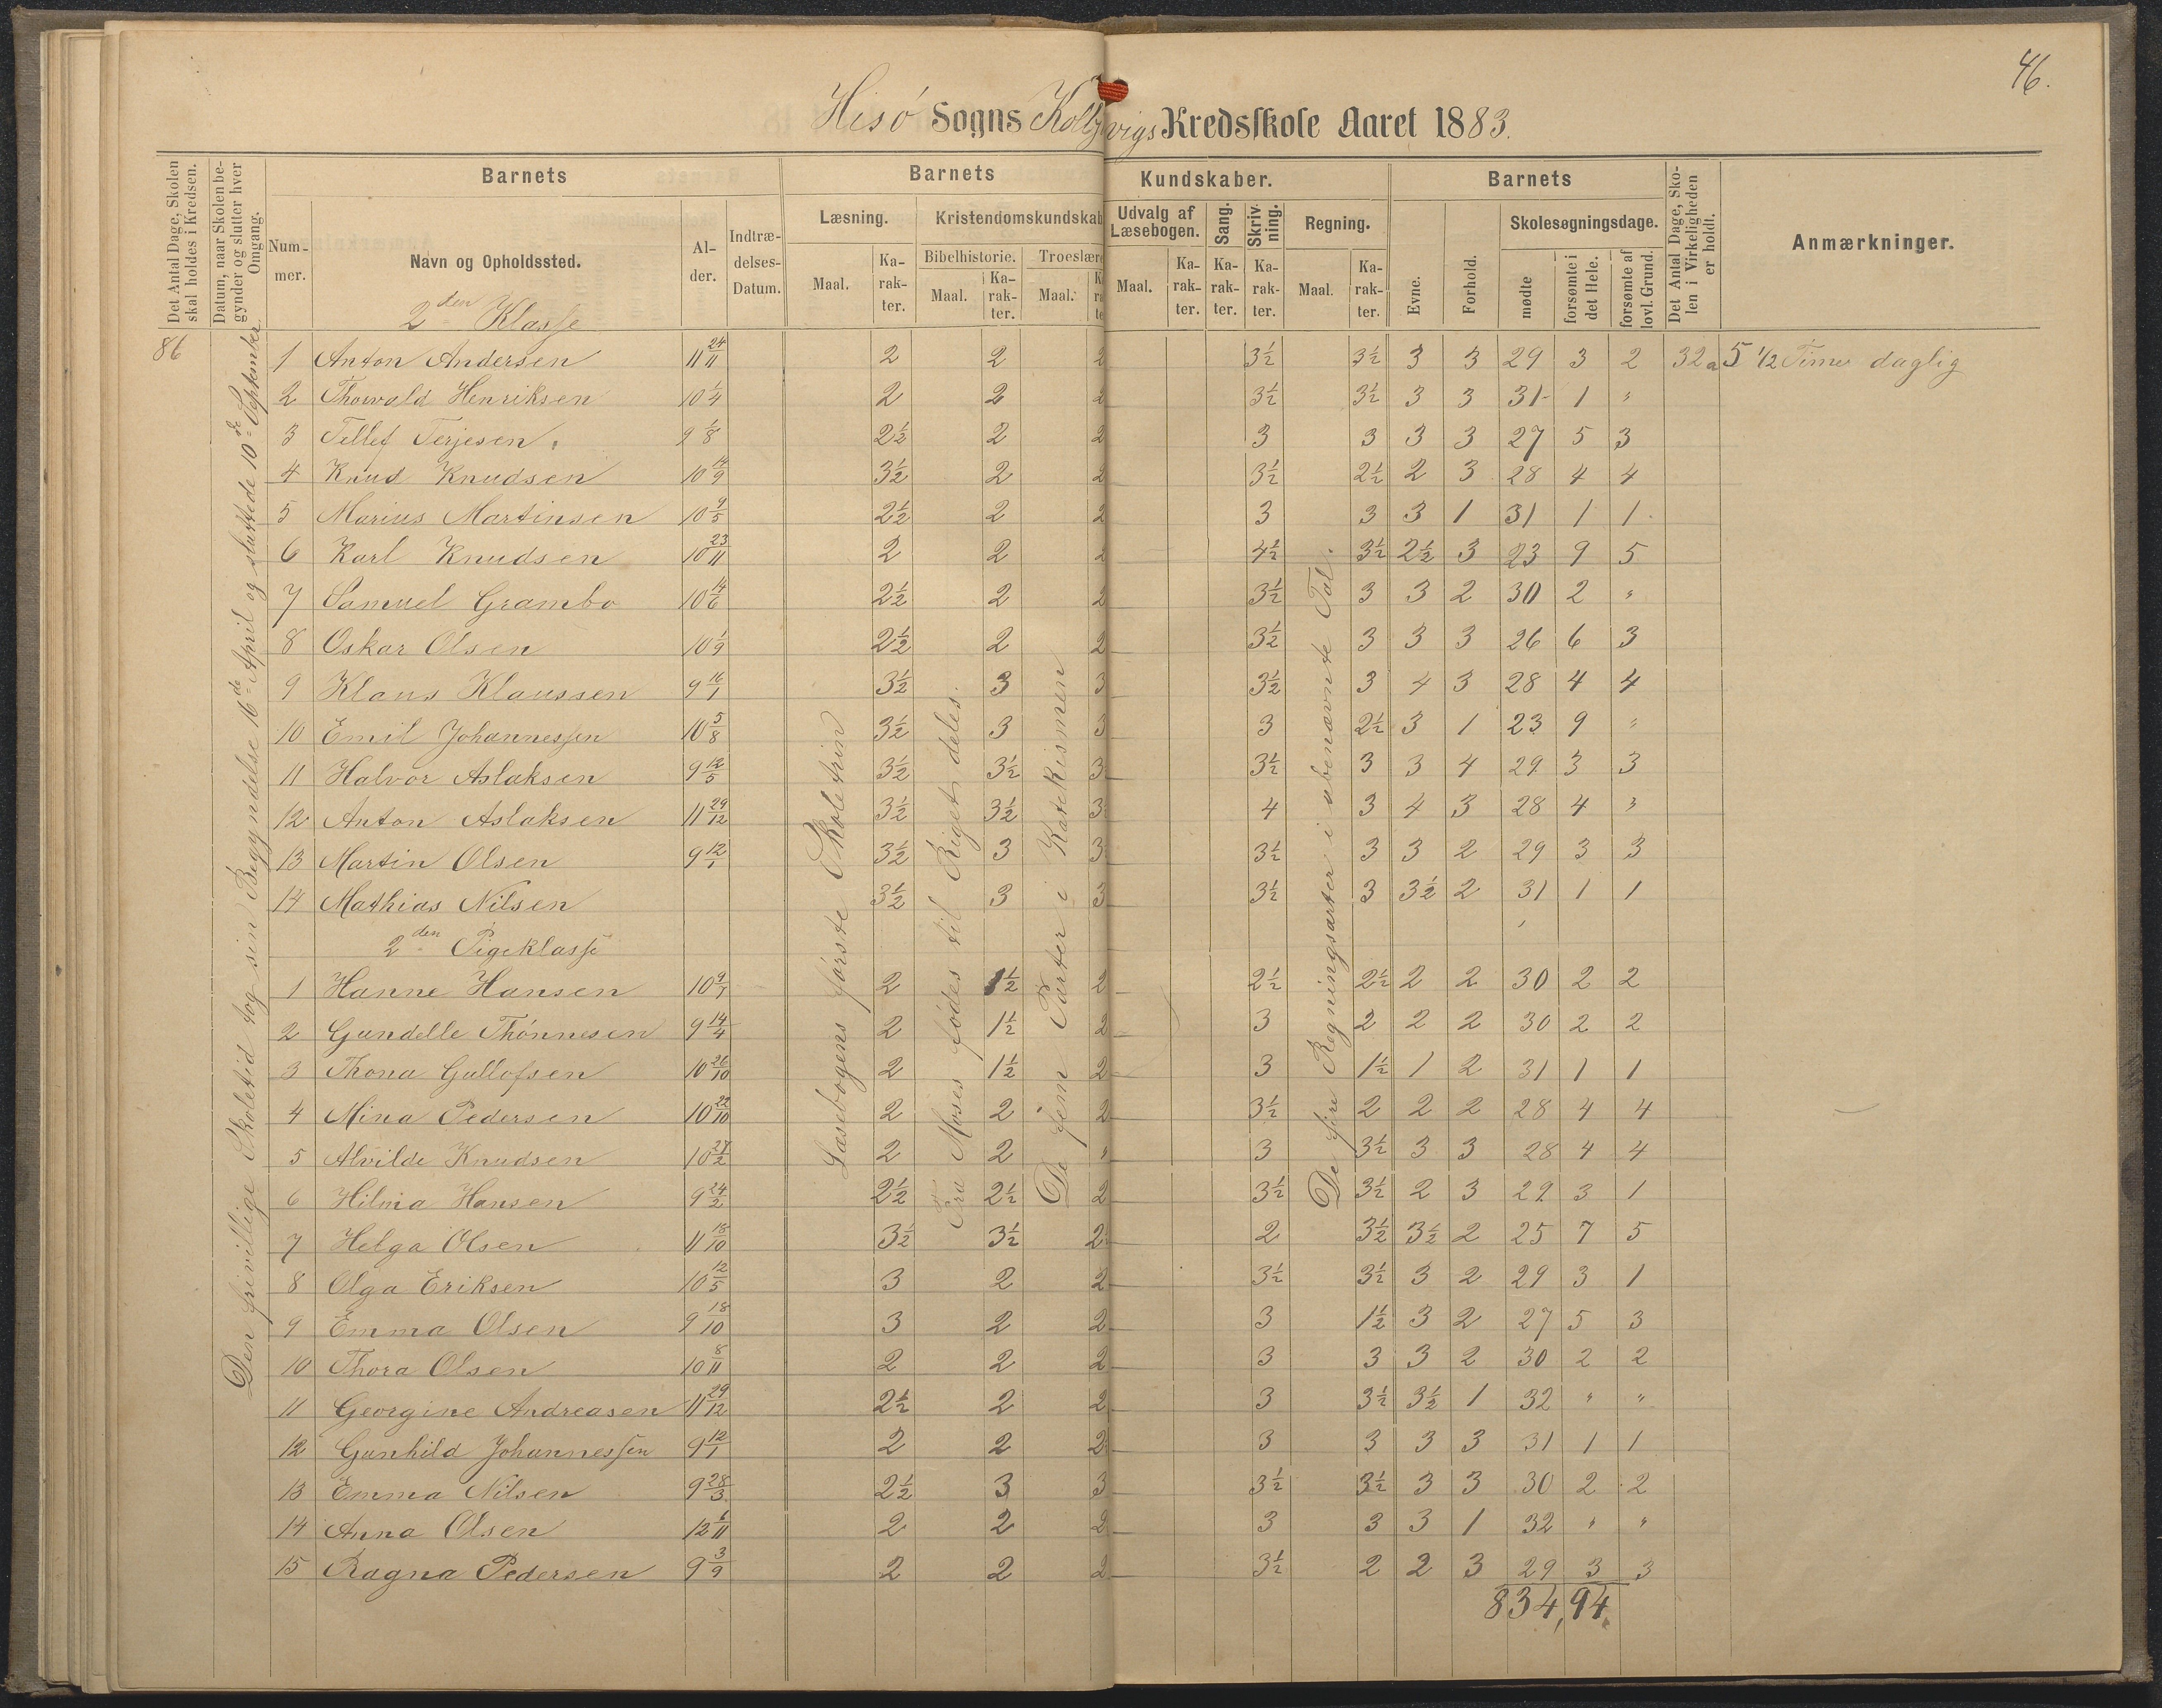 46.
Hisö Sogns Kolbj vigs Kredsskole Aaret 1883.
Det Antal Dage, Skolen skal holdes i Kredsen.
Datum, naar Skolen begynder og slutter hver Omgang.
Barnets
Nummer.
Navn og Opholdssted.
Alder.
Indtrædelses-Datum.
Barnets Kundskaber.
Læsning.
Maal.
Karakter.
Kristendomskundskab
Bibelhistorie.
Maal.
Karakter.
Troeslære
Maal.
Udvalg af Læsebogen.
Maal.
Karakter.
Sang.
Karakter.
Skrivning.
Karakter.
Regning.
Maal.
Karakter.
Barnets
Evne.
Forhold.
Skolesøgningsdage.
mødte
forsømte i det Hele.
forsømte af lovl. Grund.
Det Antal Dage, Skolen i Virkeligheden er holdt.
Anmærkninger.
2den Klasse
86
Den frivillige Skoletid tog sin Begyndelse 16de April og sluttede 10de September.
Læsebogens første Skoletrin
Fra Moses fødes til Riget deles.
De fem Parter i Katekismen
De fire Regningsarter i ubenævnte Tal.
1 Anton Andersen 11 24/11 2 2 2 3½ 3½ 3 3 29 3 2 32 a 5 1/2 Timer daglig
2 Thorvald Henriksen 10 1/4 2 2 2 3½ 3½ 3 3 31 1 "
3 Tellef Terjesen 9 1/8 2½ 2 2 3 3 3 3 27 5 3
4 Knud Knudsen 10 14/9 3½ 2 2 3½ 2½ 2 3 28 4 4
5 Marius Martinsen 10 9/5 2½ 2 2 3 3 3 1 31 1 1
6 Karl Knudsen 10 23/11 2 2 2 4½ 3½ 2½ 3 23 9 5
7 Samuel Grambo 10 14/6 2½ 2 2 3½ 3 3 2 30 2 "
8 Oskar Olsen 10 1/9 2½ 2 2 3½ 3 3 3 26 6 3
9 Klaus Klaussen 9 16/1 3½ 3 3 3½ 3 4 3 28 4 4
10 Emil Johannessen 10 5/8 3½ 3 3 3 2½ 3 1 23 9 "
11 Halvor Aslaksen 9 12/5 3½ 3½ 3 3½ 3 3 4 29 3 3
12 Anton Aslaksen 11 29/12 3½ 3½ 3 4 3 4 3 28 4 3
13 Martin Olsen 9 12/1 3½ 3 3 3½ 3 3 2 29 3 3
14 Mathias Nilsen 3½ 3 3 3½ 3 3½ 2 31 1 1
2den Pigeklasse
1 Hanne Hansen 10 9/7 2 1½ 2 2½ 2½ 2 2 30 2 2
2 Gundelle Thönnesen 9 14/4 2 1½ 2 3 2 2 2 30 2 2
3 Thona Gullofsen 10 26/10 2 1½ 2 3 1½ 1 2 31 1 1
4 Mina Pedersen 10 22/10 2 2 2 3½ 2 2 2 28 4 4
5 Alvilde Knudsen 10 27/2 2 2 " 3 3½ 3 3 28 4 4
6 Hilma Hansen 9 24/2 2½ 2½ 2 3½ 3½ 2 3 29 3 1
7 Helga Olsen 11 18/10 3½ 3½ 2 2 3½ 3½ 2 25 7 5
8 Olga Eriksen 10 12/5 3 2 2 3½ 3½ 3 2 29 3 1
9 Emma Olsen 9 18/10 3 2 2 3 1½ 3 2 27 5 3
10 Thora Olsen 10 8/11 2 2 2 3 3 3 2 30 2 2
11 Georgine Andreasen 11 29/12 2½ 2 2 3 3½ 3½ 1 32 " "
12 Gunhild Johannessen 9 12/1 2 2 2 3 3 3 3 31 1 1
13 Emma Nilsen 9 28/3 2½ 3 3 3½ 3½ 3 3 30 2 2
14 Anna Olsen 12 6/11 2 2 2 3 3 3 1 32 " "
15 Ragna Pedersen 9 3/9 2 2 2 3½ 2 2 3 29 3 3
834, 94